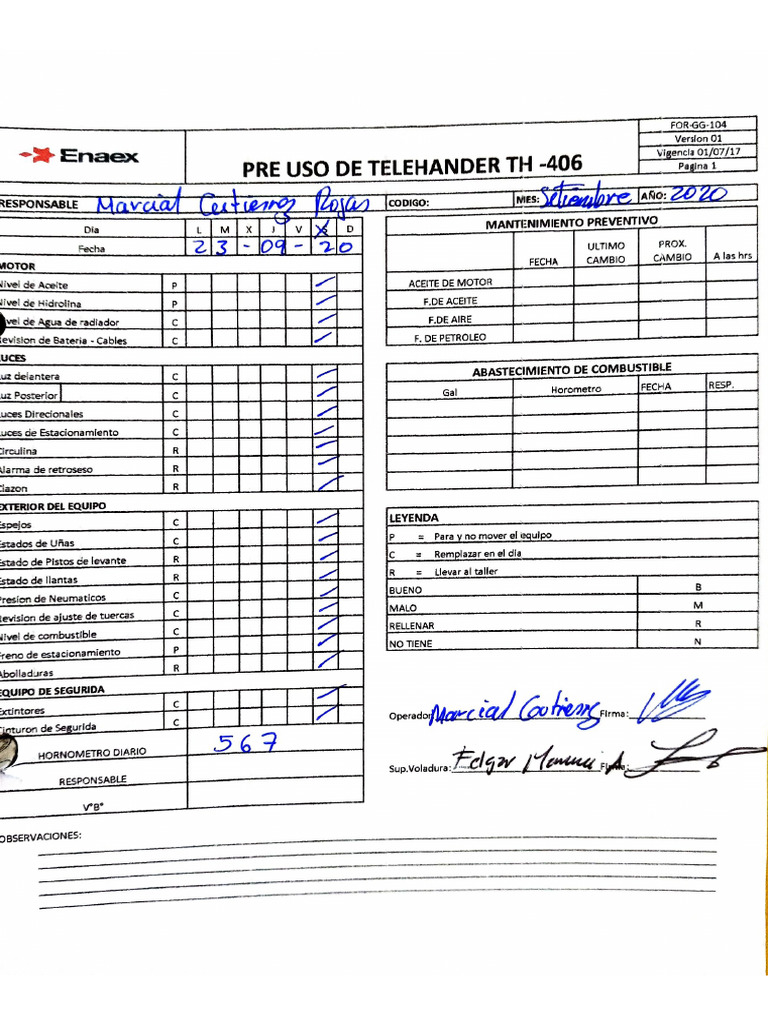 FOR-GG-104
Enaex
PRE USO DE TELEHANDER TH -406
Version 01
Vigencia 01/07/17
Pagina 1
RESPONSABLE Marcial Gutierrez Rojas
CODIGO: MES: Setiembre AÑO: 2020
Dia L M X J V S D
Fecha 23-09-20
MOTOR
Nivel de Aceite P
Nivel de Hidrolina P
vel de Agua de radiador C
Revision de Bateria - Cables C
LUCES
Luz delantera C
Luz Posterior C
Luces Direcionales C
Luces de Estacionamiento C
Circulina R
Alarma de retroseso R
Claxon R
EXTERIOR DEL EQUIPO
Espejos C
Estados de Uñas C
Estado de Pistos de levante R
Estado de llantas R
Presion de Neumaticos C
Revision de ajuste de tuercas C
Nivel de combustible C
Freno de estacionamiento P
Abolladuras R
EQUIPO DE SEGURIDA
Extintores C
Cinturon de Segurida C
HORNOMETRO DIARIO 567
RESPONSABLE
V°B°
MANTENIMIENTO PREVENTIVO
FECHA ULTIMO CAMBIO PROX. CAMBIO A las hrs
ACEITE DE MOTOR
F.DE ACEITE
F.DE AIRE
F. DE PETROLEO
ABASTECIMIENTO DE COMBUSTIBLE
Gal Horometro FECHA RESP.
LEYENDA
P = Para y no mover el equipo
C = Remplazar en el dia
R = Llevar al taller
BUENO B
MALO M
RELLENAR R
NO TIENE N
Operador Marcial Gutierrez Firma:
Sup.Voladura: Edgar Mamani A Firma:
OBSERVACIONES: